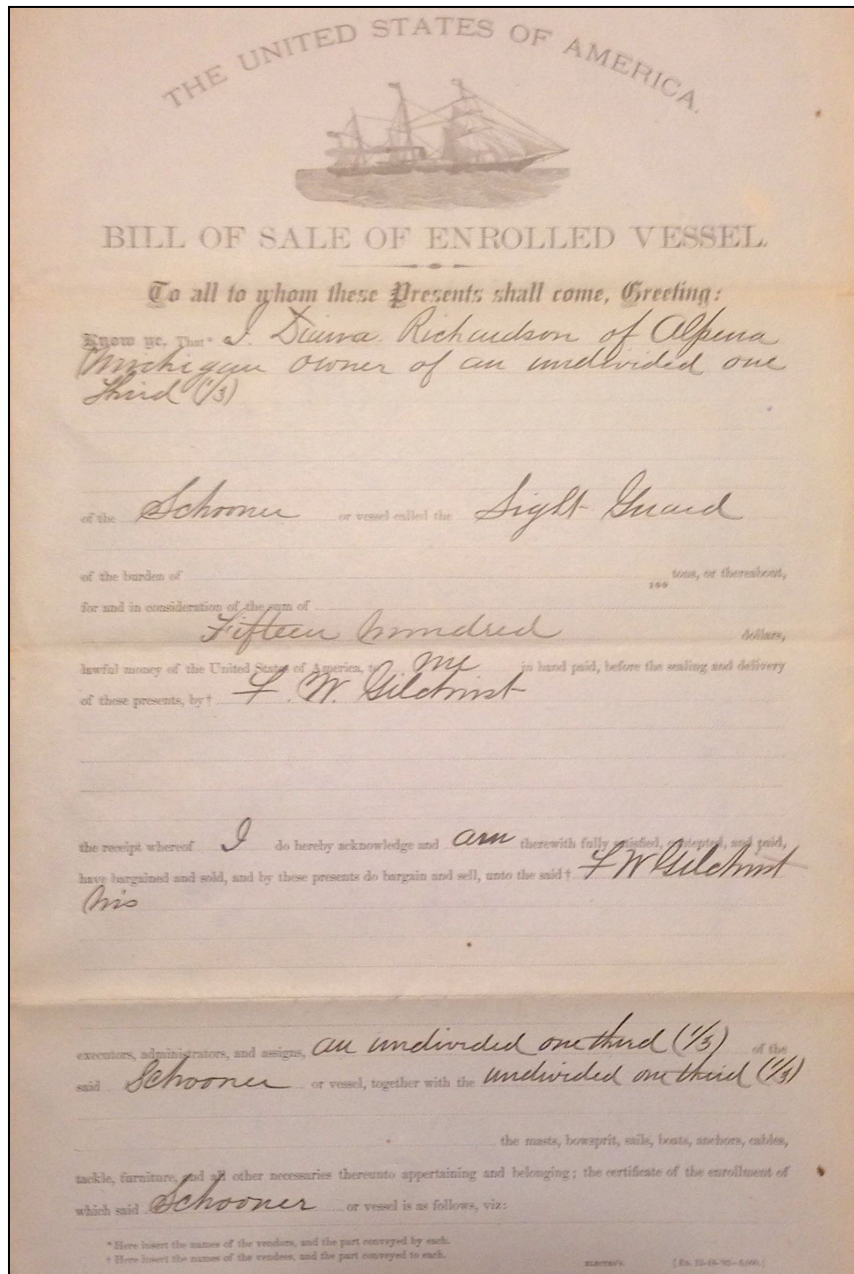 THE UNITED STATES OF AMERICA.
BILL OF SALE OF ENROLLED VESSEL.
To all to whom these Presents shall come, Greeting:
Know ye, That* I Richardson of Alpena
Michigan owner of an undivided one
third (1/3)
of the Schooner or vessel called the Light Guard
of the burden of
100 tons, or thereabout,
for and in consideration of the sum of
Fifteen hundred dollars,
lawful money of the United States of America, to me in hand paid, before the sealing and delivery
of these presents, by† F. W. Gilchrist
the receipt whereof I do hereby acknowledge and am therewith fully satisfied, contented, and paid,
have bargained and sold, and by these presents do bargain and sell, unto the said † F W Gilchrist
his
executors, administrators, and assigns, an undivided one third (1/3) of the
said Schooner or vessel, together with the undivided one third (1/3)
the masts, bowsprit, sails, boats, anchors, cables,
tackle, furniture, and all other necessaries thereunto appertaining and belonging; the certificate of the enrollment of
which said Schooner or vessel is as follows, viz:
* Here insert the names of the vendors, and the part conveyed by each.
† Here insert the names of the vendees, and the part conveyed to each.